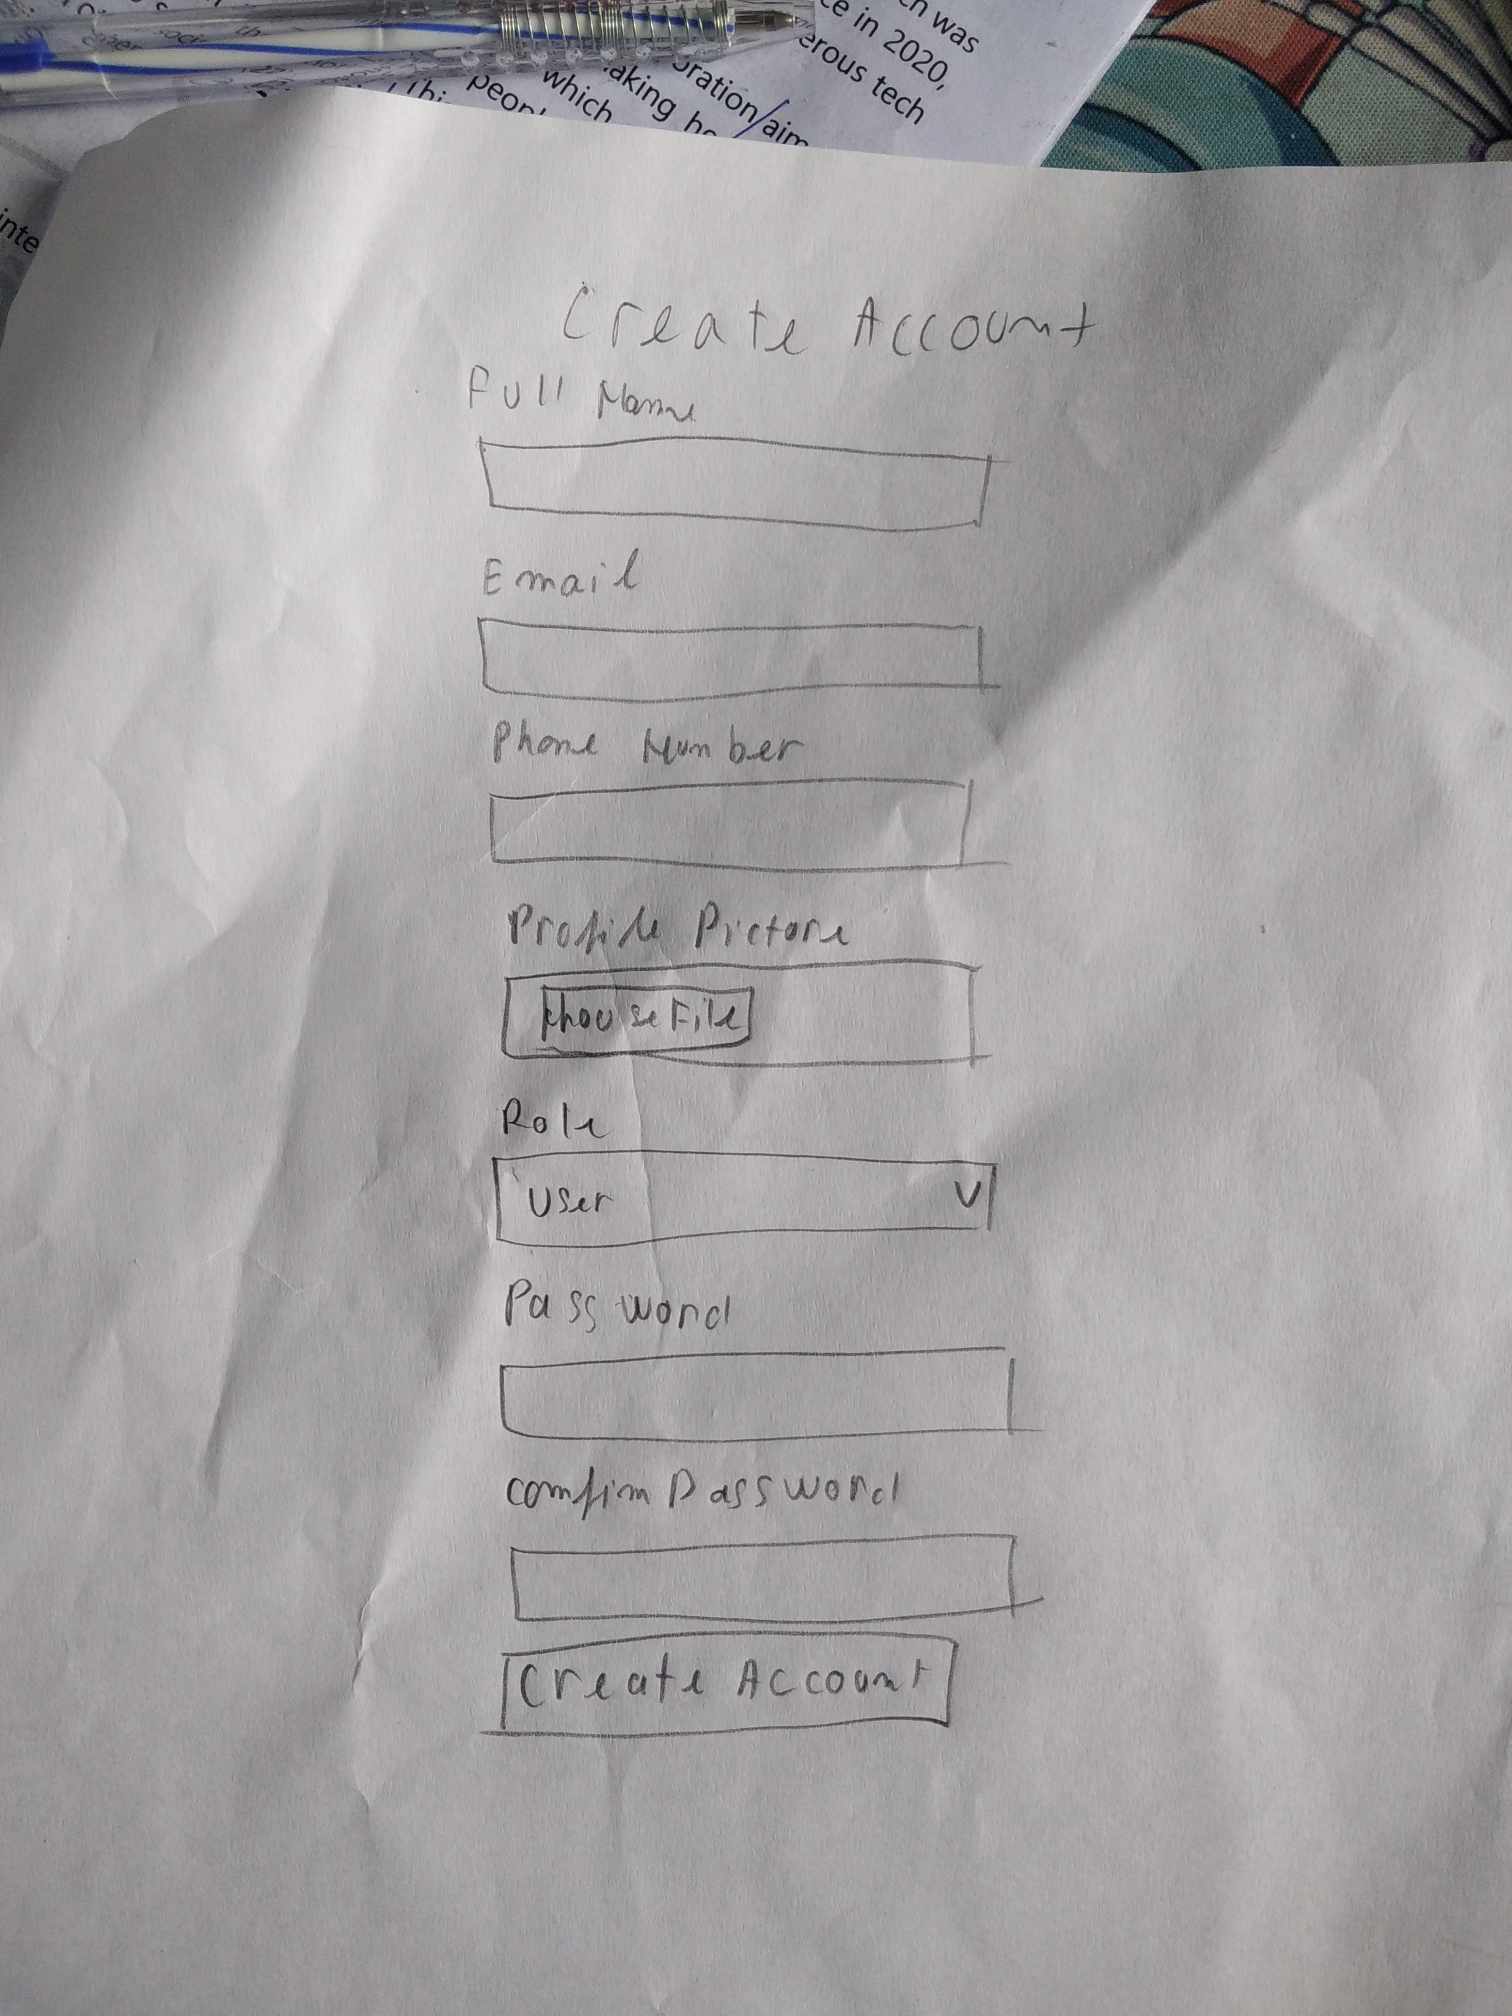 ch was
ce in 2020,
erous tech
oration/aim
making
which
inte
Create Account
Full Name
Email
Phone Number
Profile Picture
Choose File
Role
User
V
Password
comfim Password
Create Account